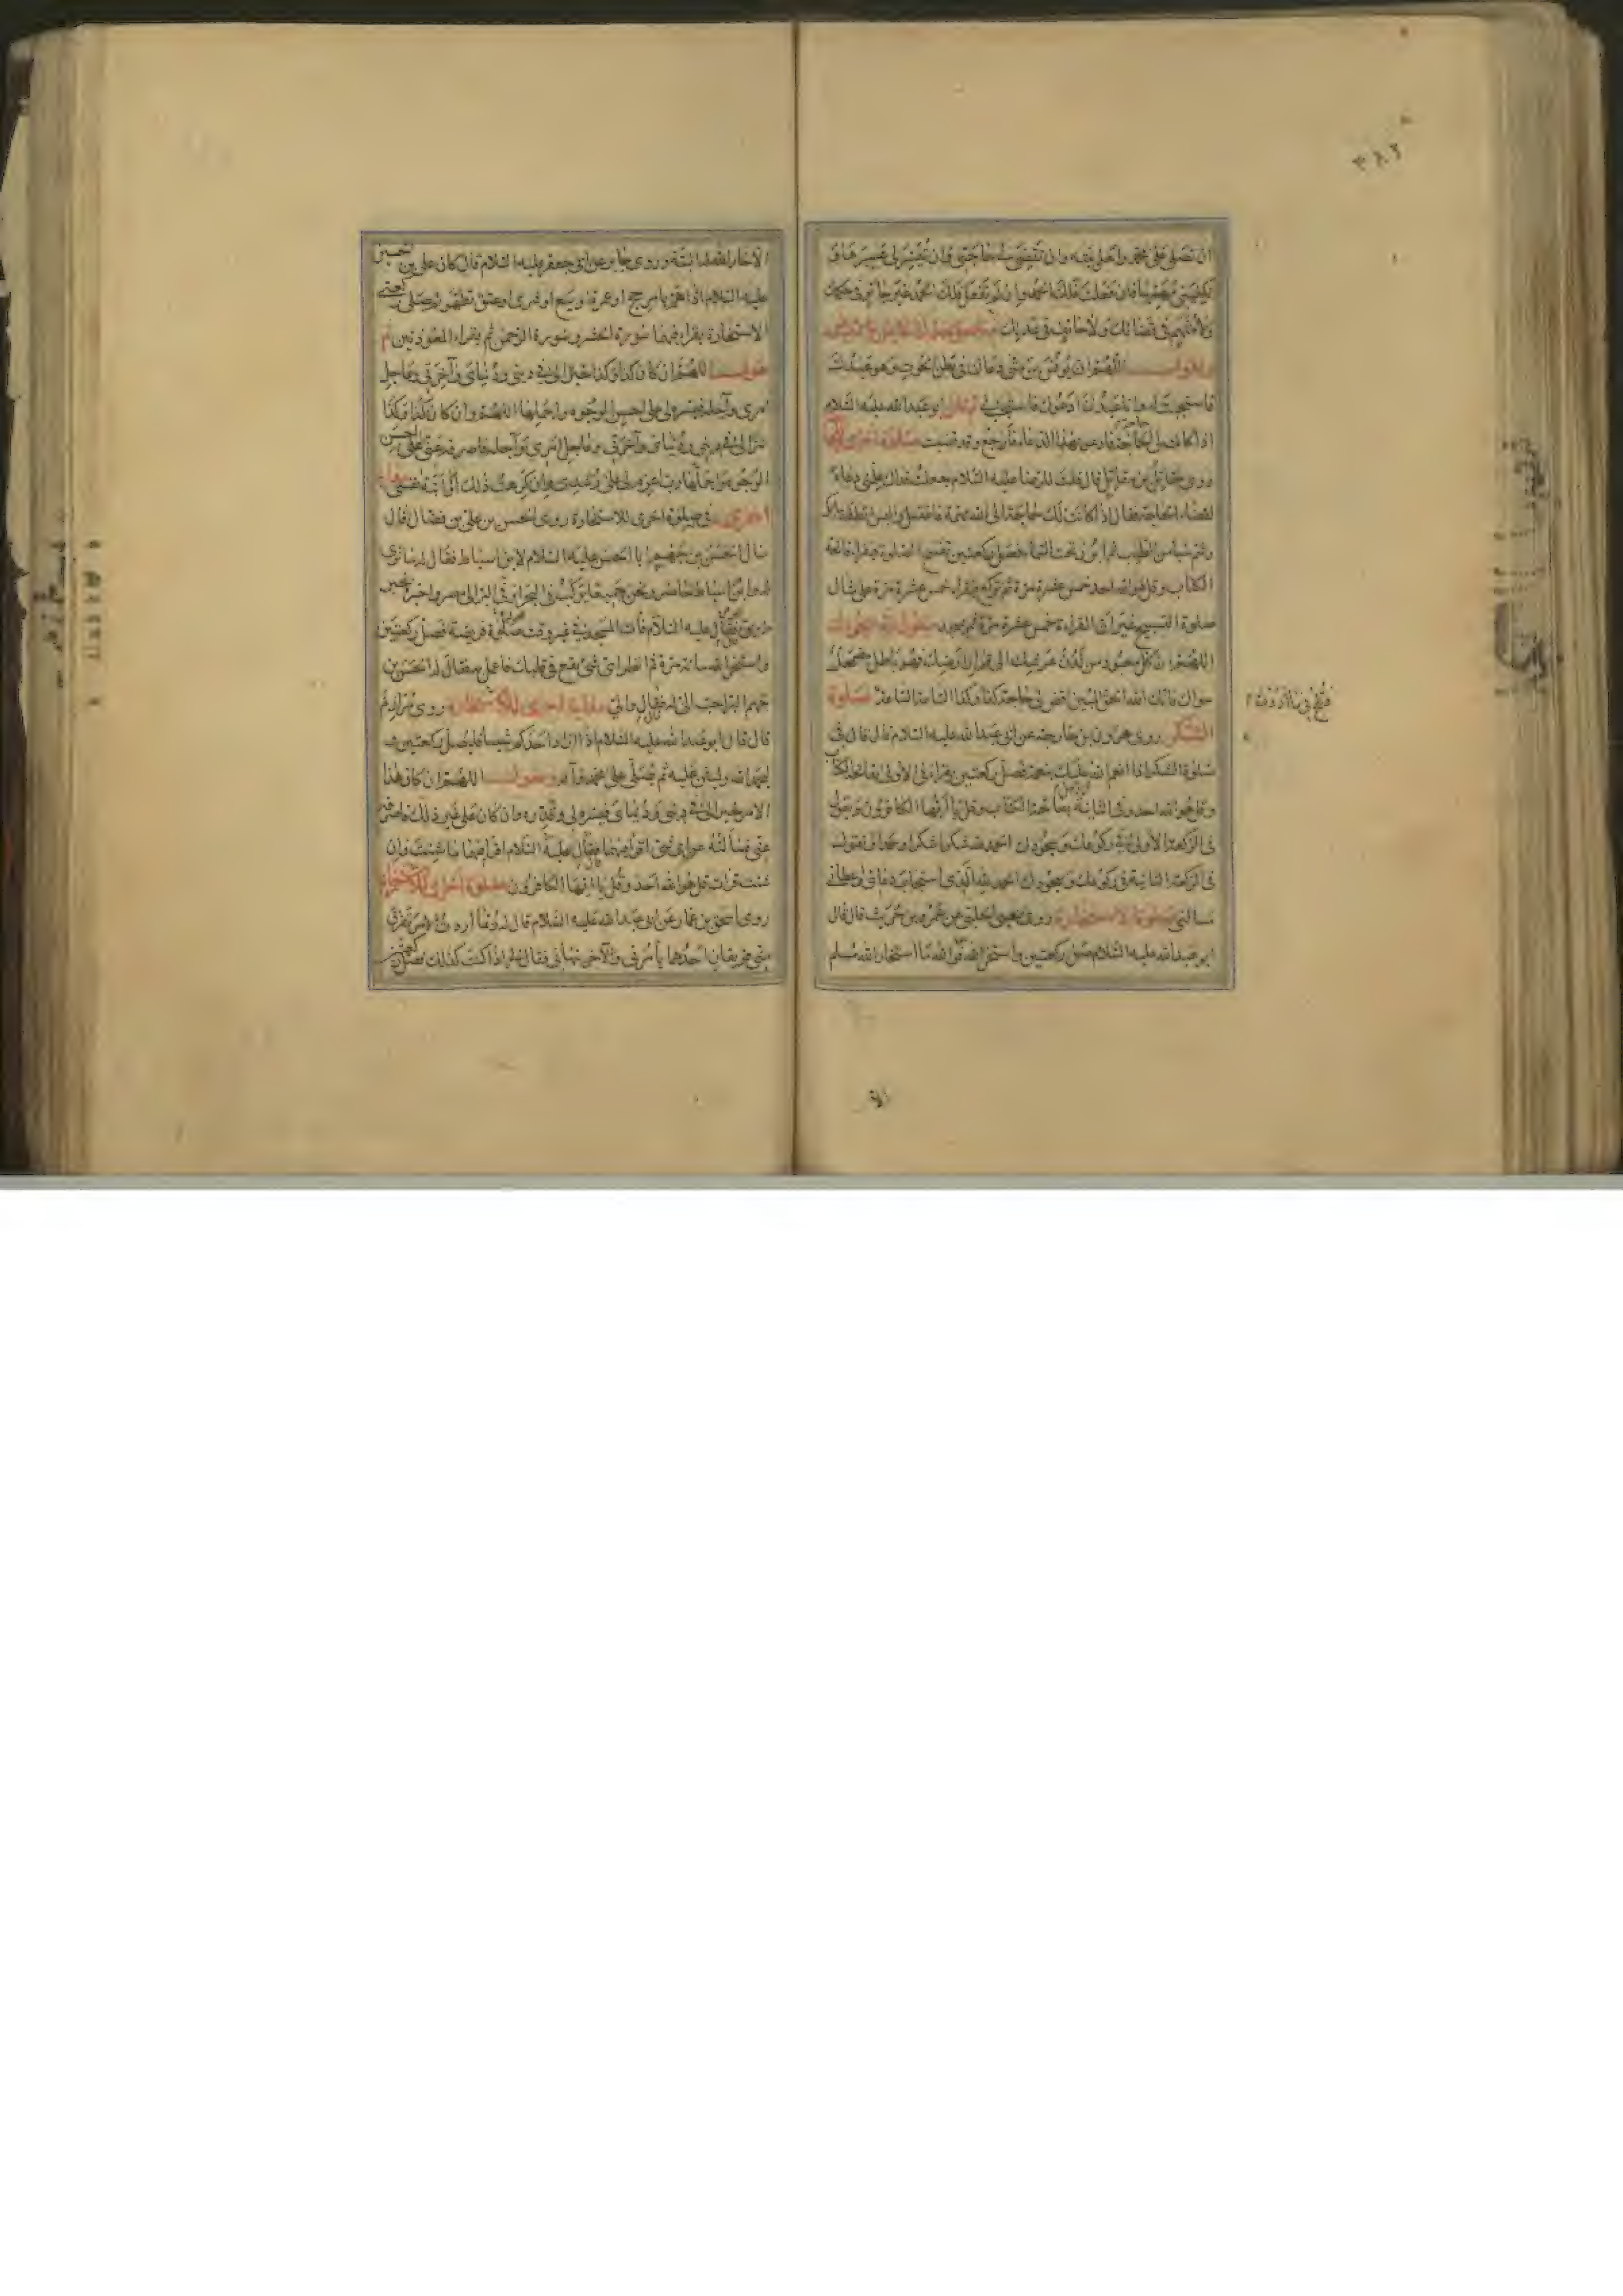 ان تصلي على محمد واهل بيته وان تقضي لي حاجتي وان تيسر لي عسيرها و
تكفيني مهمها فان فعلت فلك الحمد وان لم تفعل فلك الحمد غير جائر في حكمك
ولا متهم في قضائك ولا حائف في عدلك
اللهم ان يونس بن متى دعاك في بطن الحوت وهو عبدك
فاستجبت له وانا عبدك ادعوك فاستجب لي ابو عبد الله عليه السلام
اذا كانت لي الحاجة فادعو بهذا الدعاء فارجع وقد قضيت
روى مقاتل بن مقاتل قال قلت للرضا عليه السلام جعلت فداك علمني دعاء
لقضاء الحاجة فقال اذا كانت لك حاجة الى الله مهمة فاغتسل والبس انظف ثيابك
وشم شيئا من الطيب ثم ابرز تحت السماء فصل ركعتين تفتتح الصلوة فتقراء فاتحة
الكتاب وقل هو الله احد خمس عشرة مرة ثم تركع فتقراء خمس عشرة مرة على مثال
صلوة التسبيح غير ان القراءة خمس عشرة مرة ثم تسجد
اللهم ان كل معبود من لدن عرشك الى قرار ارضك فهو باطل مضمحل
سواك فانك الله الحق المبين اقض لي حاجة كذا وكذا الساعة الساعة صلوة
الشكر روى هرون بن خارجة عن ابي عبد الله عليه السلام قال قال في
صلوة الشكر اذا انعم الله عليك بنعمة فصل ركعتين وتقراء في الاولى بفاتحة الكتاب
وقل هو الله احد وفي الثانية بفاتحة الكتاب وقل يا ايها الكافرون وتقول
في الركعة الاولى في ركوعك وسجودك الحمد لله شكرا شكرا وحمدا وتقول
في الركعة الثانية في ركوعك وسجودك الحمد لله الذي استجاب دعائي واعطاني
مسالتي صلوة الاستخارة روى يحيى الحلبي عن عمرو بن حريث قال قال
ابو عبد الله عليه السلام صل ركعتين واستخر الله فوالله ما استخار الله مسلم
الا خار الله له البتة وروى جابر عن ابي جعفر عليه السلام قال كان علي بن الحسين
عليه السلام اذا هم بامر حج او عمرة او بيع او شرى او عتق تطهر ثم صلى ركعتي
الاستخارة يقراء فيهما سورة الحشر وسورة الرحمن ثم يقراء المعوذتين ثم
يقول اللهم ان كان كذا وكذا خيرا لي في ديني ودنياي وآخرتي وعاجل
امري وآجله فيسره لي على احسن الوجوه واجملها اللهم وان كان كذا وكذا
شرا لي في ديني ودنياي وآخرتي وعاجل امري وآجله فاصرفه عني على احسن
الوجوه واجملها رب اعزم لي على رشدي وان كرهت ذلك او ابته نفسي
اخرى في صلوة اخرى للاستخارة روى الحسن بن علي بن فضال قال
سال الحسن بن جهم ابا الحسن عليه السلام لابن اسباط فقال له ما ترى
له وابن اسباط حاضر ونحن جميعا يركب في البحر او في البر الى مصر واخبره بخير
طريق البر فقال عليه السلام فأت المسجد في غير وقت صلوة فريضة فصل ركعتين
واستخر الله مائة مرة ثم انظر اي شئ يقع في قلبك فاعمل به فقال له الحسن بن
جهم البر احب الي له فقال والي صلوة اخرى للاستخارة روى مرازم
قال قال ابو عبد الله عليه السلام اذا اراد احدكم شيئا فليصل ركعتين ثم
ليحمد الله وليثن عليه ثم يصلي على محمد وآله ويقول اللهم ان كان هذا
الامر خيرا لي في ديني ودنياي فيسره لي وقدره وان كان على غير ذلك فاصرفه
عني فسالته عن اي شئ اقراء فيهما فقال عليه السلام اقراء فيهما ما شئت وان
شئت قرات قل هو الله احد وقل يا ايها الكافرون صلوة اخرى للاستخارة
روى اسحق بن عمار عن ابي عبد الله عليه السلام قال له ربما اردت الامر تفرق
مني فريقان احدهما يأمرني والآخر ينهاني فقال لي اذا كنت كذلك فصل ركعتين